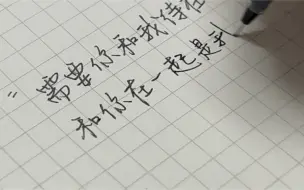 "需要你和我待在
和你在一起是我